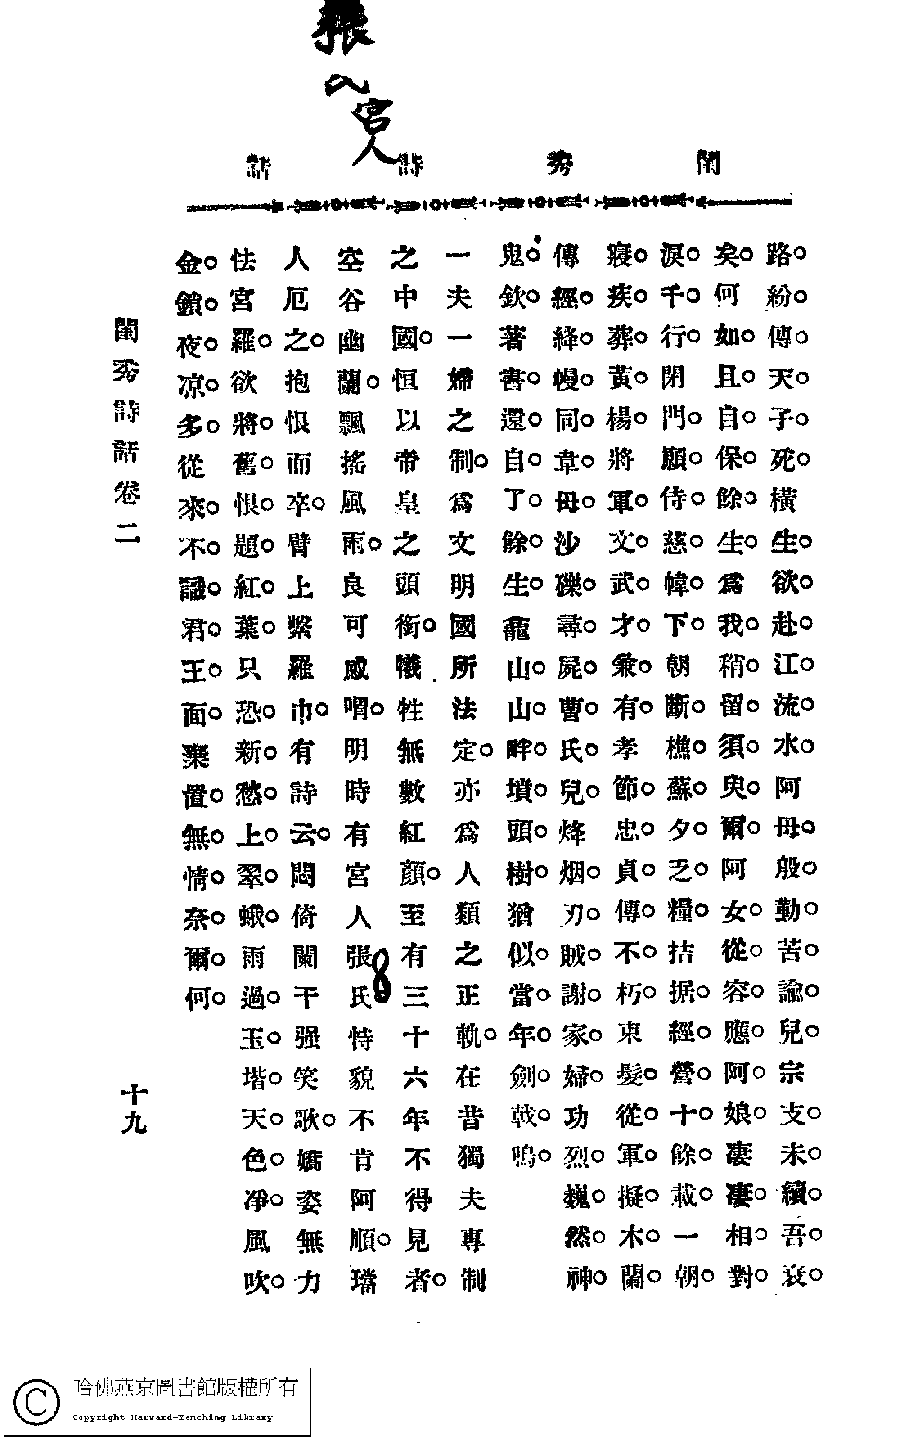 張
宮人
閨秀詩話
路紛傳天子死橫生欲赴江流水阿母殷勤苦諭兒宗支未續吾衰
矣何如且自保餘生爲我稍留須臾爾阿女從容應阿娘凄凄相對
淚千行閉門願侍慈幃下朝斷樵蘇夕乏糧拮据經營十餘載一朝
寢疾葬黃楊將軍文武才兼有孝節忠貞傳不朽束髮從軍擬木蘭
傳經絳幔同韋母沙礫尋屍曹氏兒烽烟刃賊謝家婦功烈巍然神
鬼欽著書還自了餘生龍山山畔墳頭樹猶似當年劍戟鳴
一夫一婦之制爲文明國所法定亦爲人類之正軌在昔獨夫專制
之中國恒以帝皇之頭銜犧牲無數紅顏至有三十六年不得見者
空谷幽蘭飄搖風雨良可感喟明時有宮人張氏恃貌不肯阿順璫
人厄之抱恨而卒臂上繫羅巾有詩云悶倚闌干强笑歌嬌姿無力
怯宮羅欲將舊恨題紅葉只恐新愁上翠蛾雨過玉堦天色凈風吹
金鎖夜凉多從來不識君王面棄置無情奈爾何
閨秀詩話卷二
十九
哈佛燕京圖書館版權所有
Copyright Harvard-Yenching Library